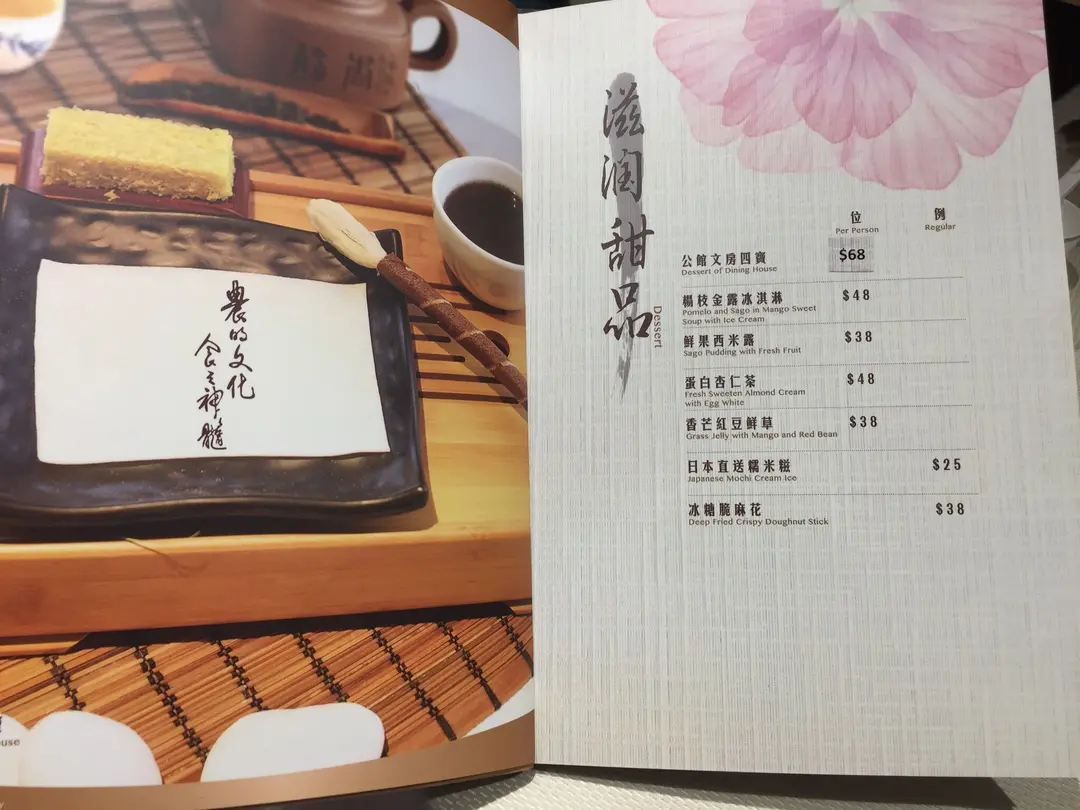 農的文化
食之神髓
ouse
滋润甜品
Dessert
位
Per Person
例
Regular
公館文房四寶
Dessert of Dining House
$68
楊枝金露冰淇淋
Pomelo and Sago in Mango Sweet
Soup with Ice Cream
$48
鮮果西米露
Sago Pudding with Fresh Fruit
$38
蛋白杏仁茶
Fresh Sweeten Almond Cream
with Egg White
$48
香芒紅豆鮮草
Grass Jelly with Mango and Red Bean
$38
日本直送糯米糍
Japanese Mochi Cream Ice
$25
冰糖脆麻花
Deep Fried Crispy Doughnut Stick
$38